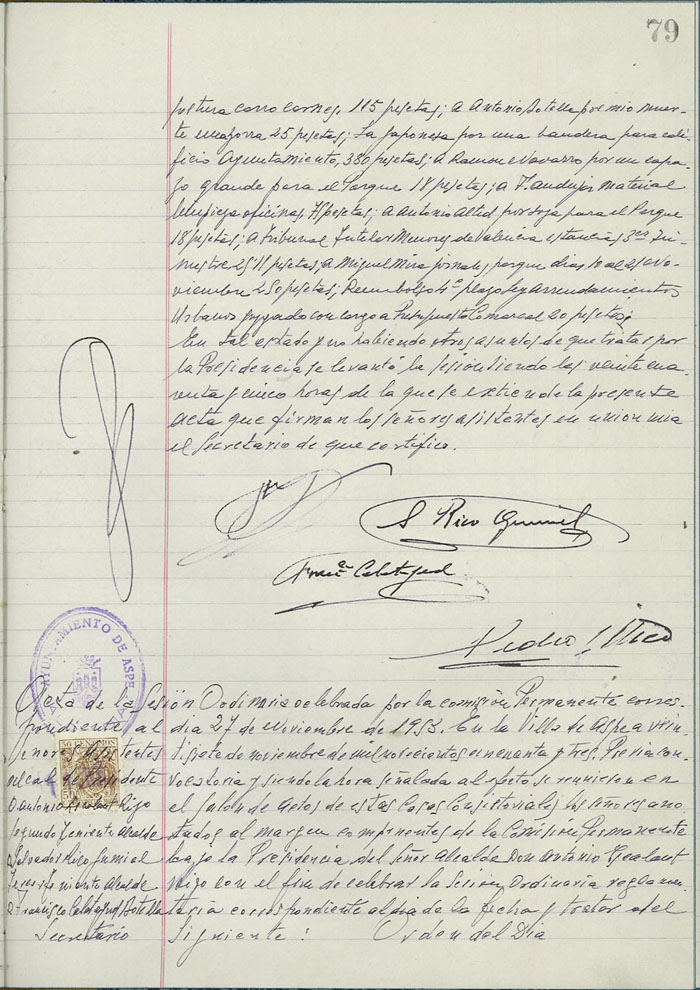 79
pultura carro carnes, 115 pesetas; a Antonio Botella premio muer-
te una zorra 25 pesetas; La Japonesa por una bandera para edi-
ficio Ayuntamiento, 380 pesetas; a Ramon Navarro por un capa-
zo grande para el Parque 18 pesetas; a F. Andujar material
limpieza oficinas, pesetas; a Antonio Alted por soga para el Parque
18 pesetas; a Tribunal Tutelar Menores de Valencia estancias 3er Tri-
mestre pesetas; a Miguel Mira jornales parque dias al 25 No-
viembre 250 pesetas; Reembolso 4º plazo Ley Arrendamientos
Urbanos pagado con cargo a Presupuesto Comarcal 20 pesetas;
En tal estado y no habiendo otros asuntos de que tratar por
la Presidencia se levantó la sesión siendo las veinte cua-
renta y cinco horas de la que se extiende la presente
acta que firman los señores asistentes en union mia
el Secretario de que certifico.
S Rico Gumiel
Franco Calatayud
Pedro Rico
AYUNTAMIENTO DE ASPE
Acta de la Sesión Ordinaria celebrada por la comisión Permanente corres-
pondiente al dia 27 de Noviembre de 1953. En la Villa de Aspe a vein-
Señores Asistentes
tisiete de noviembre de mil novecientos cincuenta y tres. Previa con-
Alcalde Presidente
vocatoria y siendo la hora señalada al efecto se reunieron en
D Antonio Gealant Rizo
el Salon de Actos de estas Casas Consistoriales los señores ano-
Segundo Teniente Alcalde
tados al margen componentes de la Comisión Permanente
D Salvador Rico Gumiel
bajo la Presidencia del Señor Alcalde Don Antonio Gealant
Tercer Teniente Alcalde
Rizo con el fin de celebrar la Sesion Ordinaria reglamen-
D. Francisco Calatayud Botella
taria correspondiente al dia de la fecha y tratar del
Secretario
siguiente: Orden del Dia